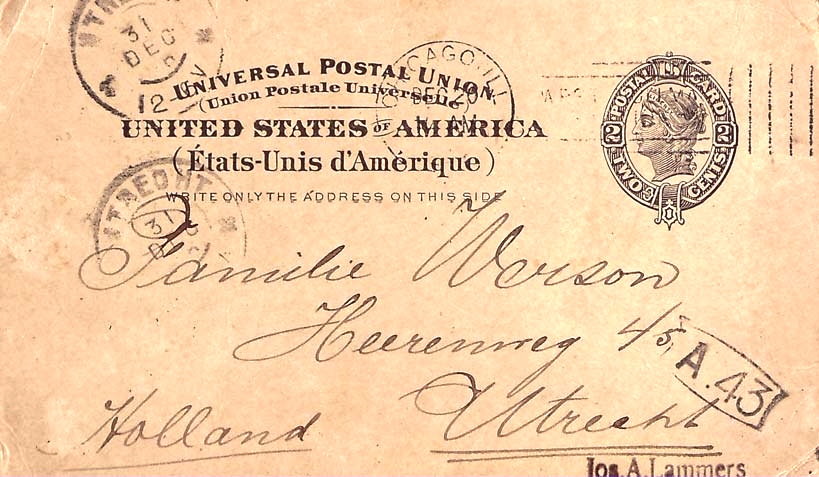 UTRECHT
31
DEC
12-1N
UNIVERSAL POSTAL UNION
(Union Postale Universelle)
UNITED STATES OF AMERICA
(États-Unis d'Amérique)
WRITE ONLY THE ADDRESS ON THIS SIDE
CHICAGO, ILL.
DEC 20
AM
POSTAL CARD
2 2
TWO CENTS
UTRECHT
31
DEC
Familie Werson
Heerenweg 45
A.43
Utrecht
Holland
Jos. A. Lammers